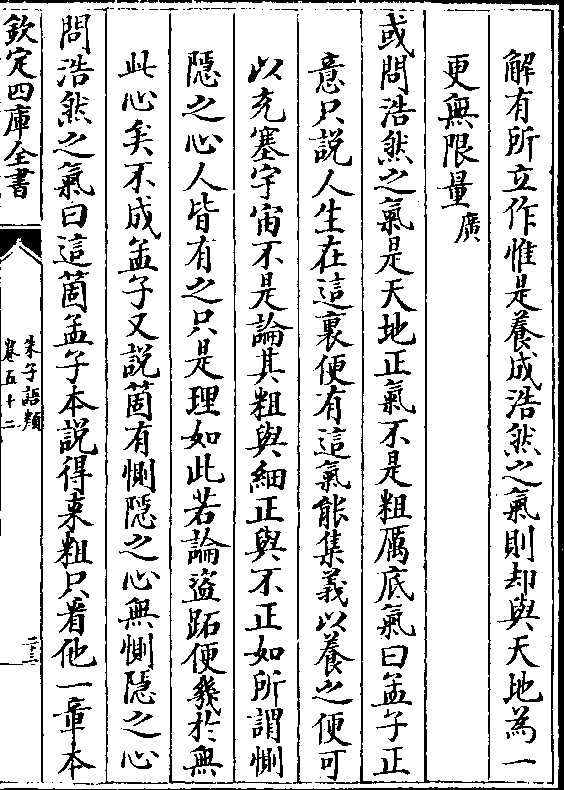 解有所立作惟是養成浩然之氣則却與天地為一
更無限量廣
或問浩然之氣是天地正氣不是粗厲底氣曰孟子正
意只説人生在這裏便有這氣能集義以養之便可
以充塞宇宙不是論其粗與細正與不正如所謂惻
隠之心人皆有之只是理如此若論盜跖便幾於無
此心矣不成孟子又説箇有惻隠之心無惻隠之心
問浩然之氣曰這箇孟子本説得來粗只看他一章本
欽定四庫全書
朱子語類
卷五十二
二十二